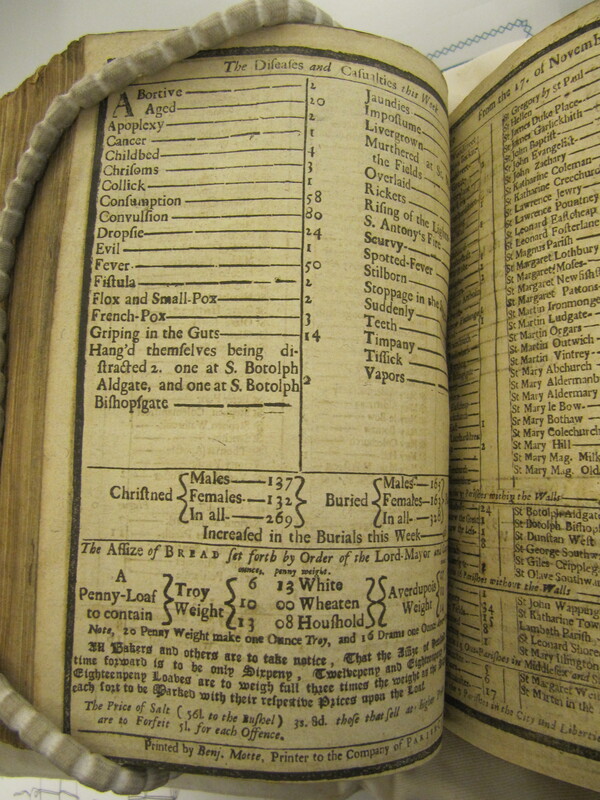 The Diseases and Casualties this Week
Abortive 2
Aged 20
Apoplexy 2
Cancer 1
Childbed 4
Chrisoms 3
Collick 1
Consumption 58
Convulsion 80
Dropsie 24
Evil 1
Fever 50
Fistula 2
Flox and Small-Pox 2
French-Pox 3
Griping in the Guts 14
Hang'd themselves being di-
stracted 2. one at S. Botolph
Aldgate, and one at S. Botolph 2
Bishopsgate
Jaundies
Impostume
Livergrown
Murthered at S.
the Fields
Overlaid
Rickets
Rising of the Lights
S. Antony's Fire
Scurvy
Spotted-Fever
Stilborn
Stoppage in the
Suddenly
Teeth
Timpany
Tissick
Vapors
Christned Males 137
Females 132
In all 269
Buried Males
Females
In all
Increased in the Burials this Week
The Assize of BREAD set forth by Order of the Lord-Mayor and
ounces, penny weight.
A Penny-Loaf to contain Troy Weight
6 13 White
10 00 Wheaten
13 08 Houshold
Averdupois Weight
Note, 20 Penny Weight make one Ounce Troy, and 16 Drams one Ounce
All Bakers and others are to take notice, That the Assize of
time forward is to be only Sixpeny, Twelvepeny and Eighteenpeny
Eighteenpeny Loaves are to weigh full three times the weight
each sort to be Marked with their respective Prizes upon the Loaf.
The Price of Salt (56l. to the Bushel) 3s. 8d. those that sell at
are to Forfeit 5l. for each Offence.
Printed by Benj. Motte, Printer to the Company of
From the 17. of Novemb
St Gregory by St Paul
St Hellen
St James Duke Place
St James Garlickhith
St John Baptist
St John Evangelist
St John Zachary
St Katharine Coleman
St Katharine Creechurch
St Lawrence Jewry
St Lawrence Pountney
St Leonard Eastcheap
St Leonard Fosterlane
St Magnus Parish
St Margaret Lothbury
St Margaret Moses
St Margaret Newfishst
St Margaret Pattons
St Martin Ironmonge
St Martin Ludgate
St Martin Orgars
St Martin Outwich
St Martin Vintrey
St Mary Abchurch
St Mary Aldermanb
St Mary Aldermary
St Mary le Bow
St Mary Bothaw
St Mary Colechurch
St Mary Hill
St Mary Mag. Milk
St Mary Mag. Old
Parishes within the Walls
St Botolph Aldgate
St Botolph Bishop
St Dunstan West
St George Southw
St Giles Cripple
St Olave Southwa
Parishes without the Walls
St John Wapping
St Katharine Tow
Lambeth Parish
St Leonard Shore
St Mary Islington
Parishes in Middlesex and
St Margaret West
St Martin in the
Parishes in the City and Liberties